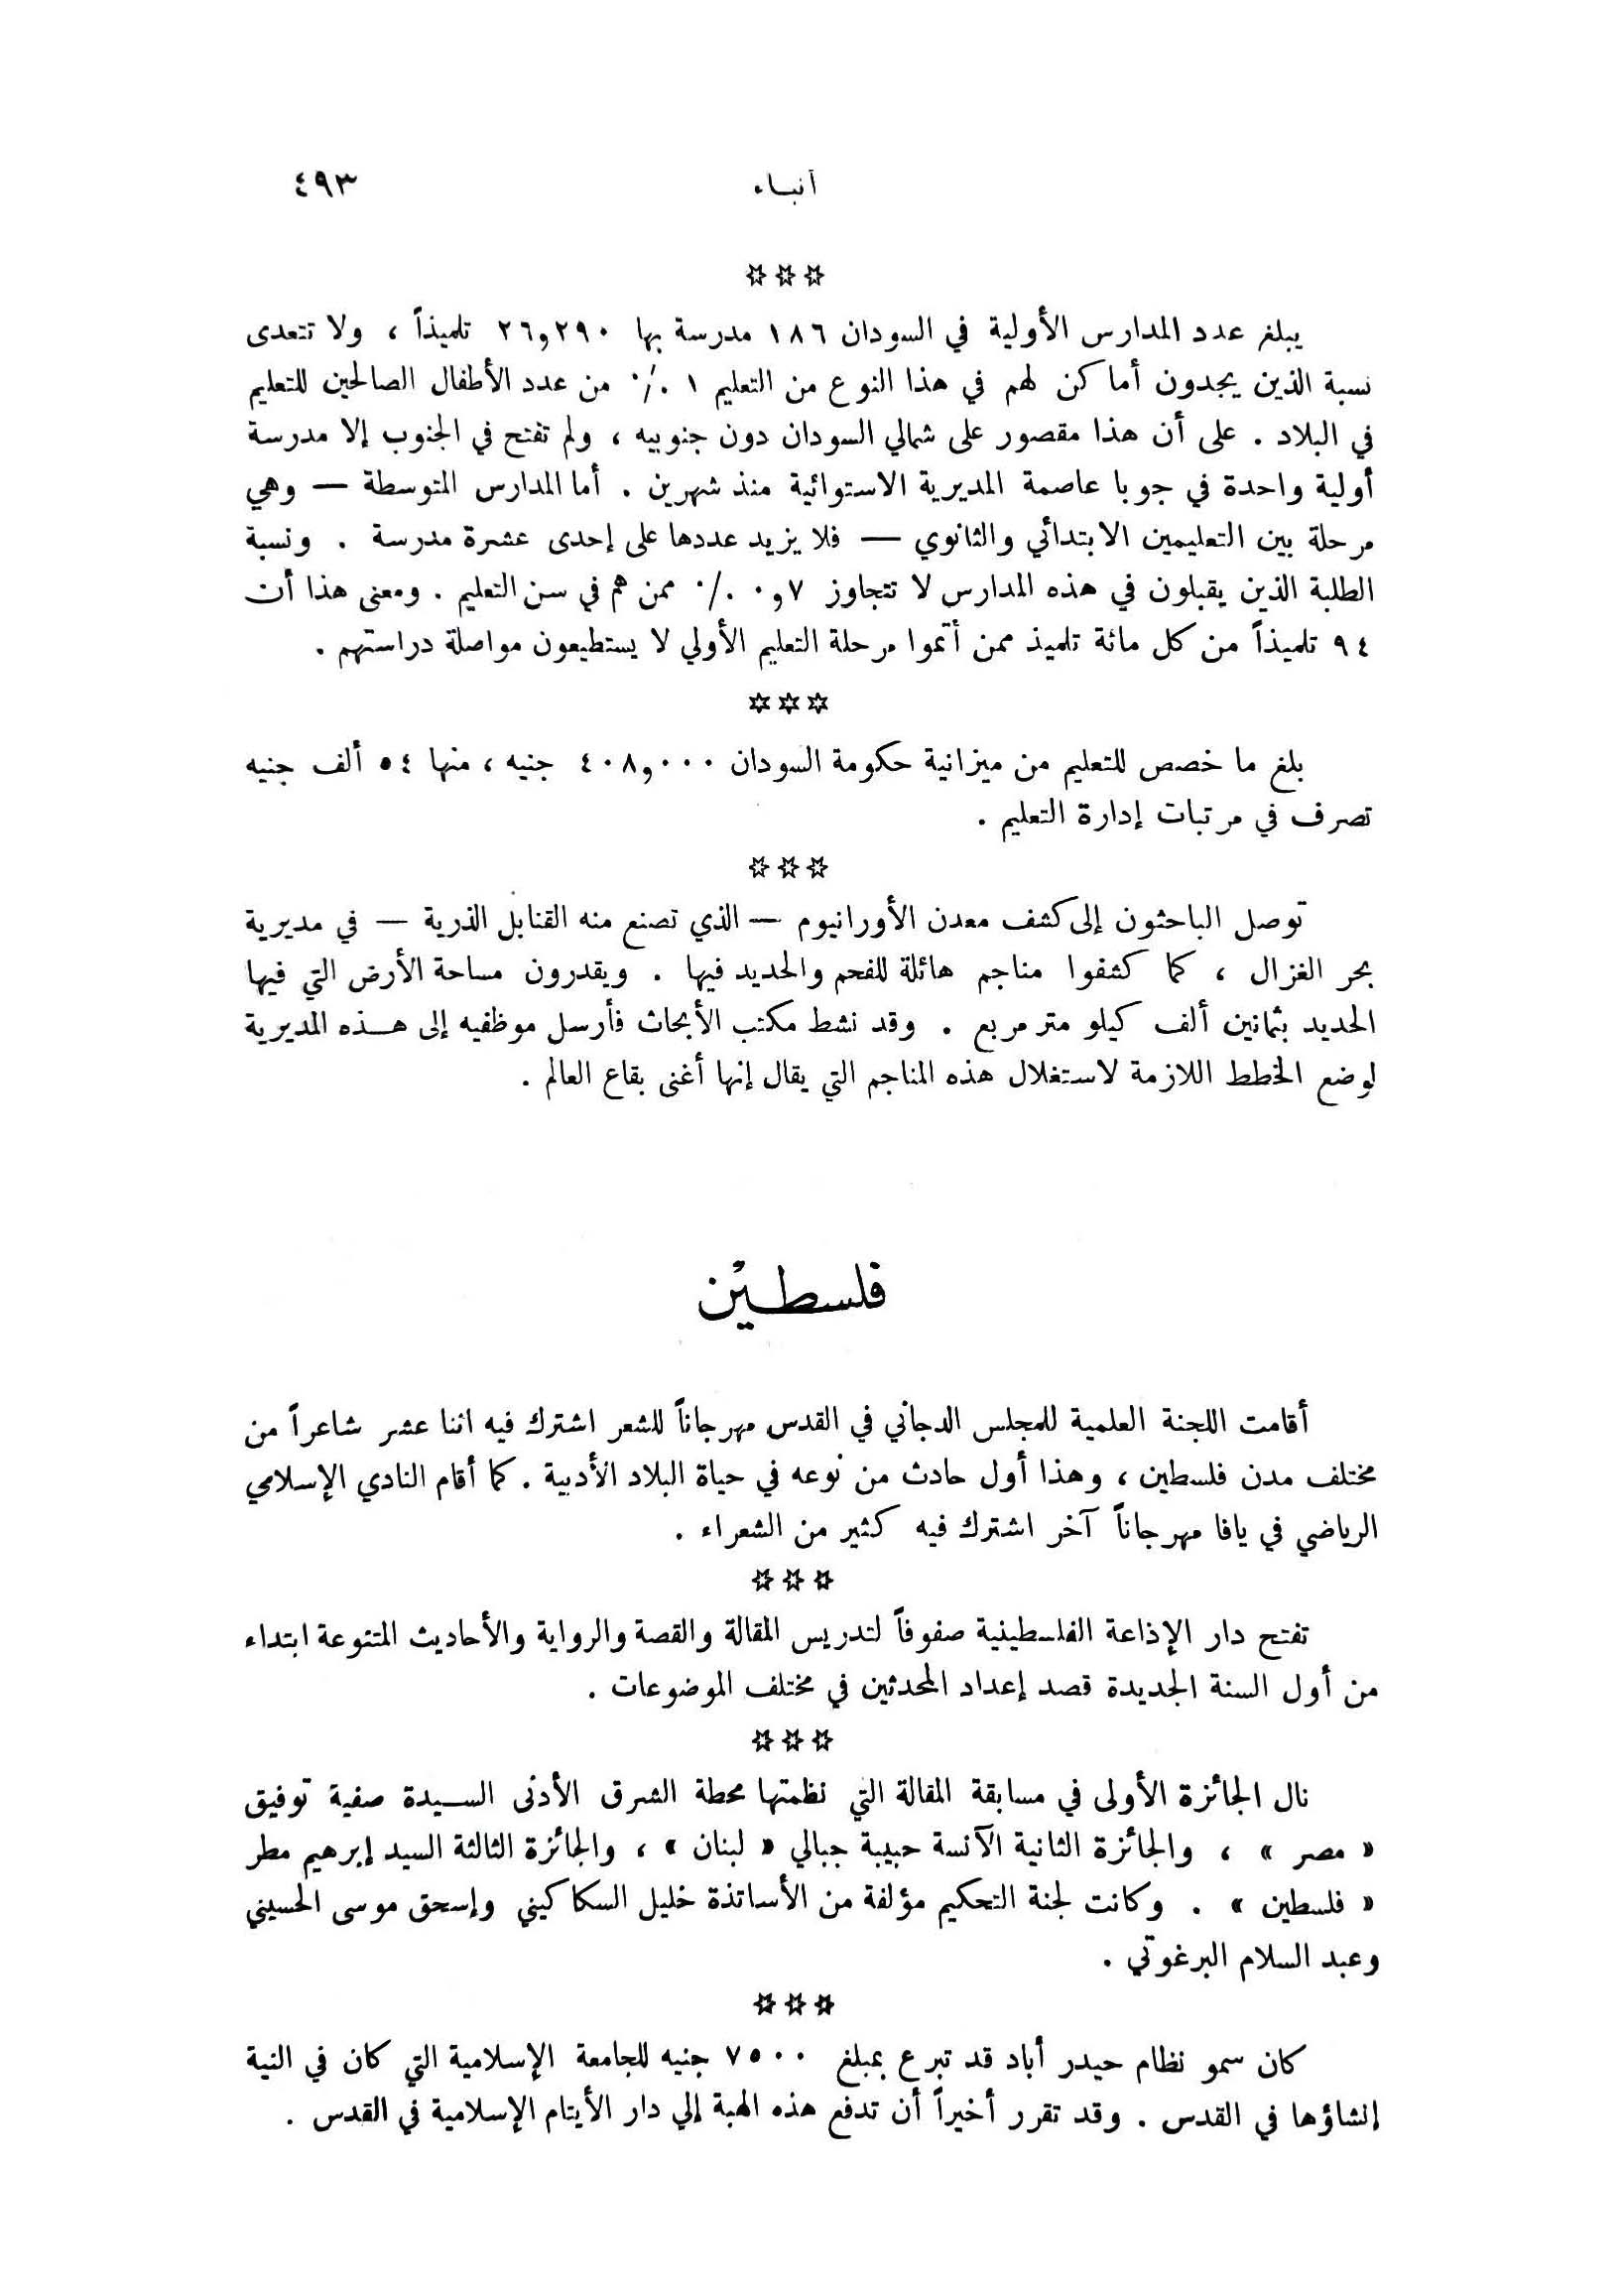 أنباء ٤٩٣
***
يبلغ عدد المدارس الأولية في السودان ١٨٦ مدرسة بها ٢٦,٢٩٠ تلميذاً ، ولا تتعدى
نسبة الذين يجدون أماكن لهم في هذا النوع من التعليم ١ ٪ من عدد الأطفال الصالحين للتعليم
في البلاد . على أن هذا مقصور على شمالي السودان دون جنوبيه ، ولم تفتح في الجنوب إلا مدرسة
أولية واحدة في جوبا عاصمة المديرية الاستوائية منذ شهرين . أما المدارس المتوسطة — وهي
مرحلة بين التعليمين الابتدائي والثانوي — فلا يزيد عددها على إحدى عشرة مدرسة . ونسبة
الطلبة الذين يقبلون في هذه المدارس لا تتجاوز ٠,٧ ٪ ممن هم في سن التعليم . ومعنى هذا أن
٩٤ تلميذاً من كل مائة تلميذ ممن أتموا مرحلة التعليم الأولي لا يستطيعون مواصلة دراستهم .
***
بلغ ما خصص للتعليم من ميزانية حكومة السودان ٤٠٨,٠٠٠ جنيه ، منها ٥٤ ألف جنيه
تصرف في مرتبات إدارة التعليم .
***
توصل الباحثون إلى كشف معدن الأورانيوم — الذي تصنع منه القنابل الذرية — في مديرية
بحر الغزال ، كما كشفوا مناجم هائلة للفحم والحديد فيها . ويقدرون مساحة الأرض التي فيها
الحديد بثمانين ألف كيلو متر مربع . وقد نشط مكتب الأبحاث فأرسل موظفيه إلى هذه المديرية
لوضع الخطط اللازمة لاستغلال هذه المناجم التي يقال إنها أغنى بقاع العالم .
فلسطين
أقامت اللجنة العلمية للمجلس الدجاني في القدس مهرجاناً للشعر اشترك فيه اثنا عشر شاعراً من
مختلف مدن فلسطين ، وهذا أول حادث من نوعه في حياة البلاد الأدبية . كما أقام النادي الإسلامي
الرياضي في يافا مهرجاناً آخر اشترك فيه كثير من الشعراء .
***
تفتح دار الإذاعة الفلسطينية صفوفاً لتدريس المقالة والقصة والرواية والأحاديث المتنوعة ابتداء
من أول السنة الجديدة قصد إعداد المحدثين في مختلف الموضوعات .
***
نال الجائزة الأولى في مسابقة المقالة التي نظمتها محطة الشرق الأدنى السيدة صفية توفيق
« مصر » ، والجائزة الثانية الآنسة حبيبة جبالي « لبنان » ، والجائزة الثالثة السيد إبرهيم مطر
« فلسطين » . وكانت لجنة التحكيم مؤلفة من الأساتذة خليل السكاكيني وإسحق موسى الحسيني
وعبد السلام البرغوتي .
***
كان سمو نظام حيدر أباد قد تبرع بمبلغ ٧٥٠٠ جنيه للجامعة الإسلامية التي كان في النية
إنشاؤها في القدس . وقد تقرر أخيراً أن تدفع هذه الهبة إلي دار الأيتام الإسلامية في القدس .